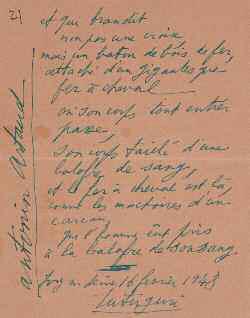 2)
et que brandit
non pas une croix
mais un bâton de bois de fer,
attaché d'un gigantesque
fer à cheval
où son corps tout entier
passe,
son corps taillé d'une
balafre de sang,
et le fer à cheval est là,
comme les machoires d'un
carcan,
que l'homme eût pris
à la balafre de son sang.
Ivry sur Seine 16 février 1948
antonin Artaud